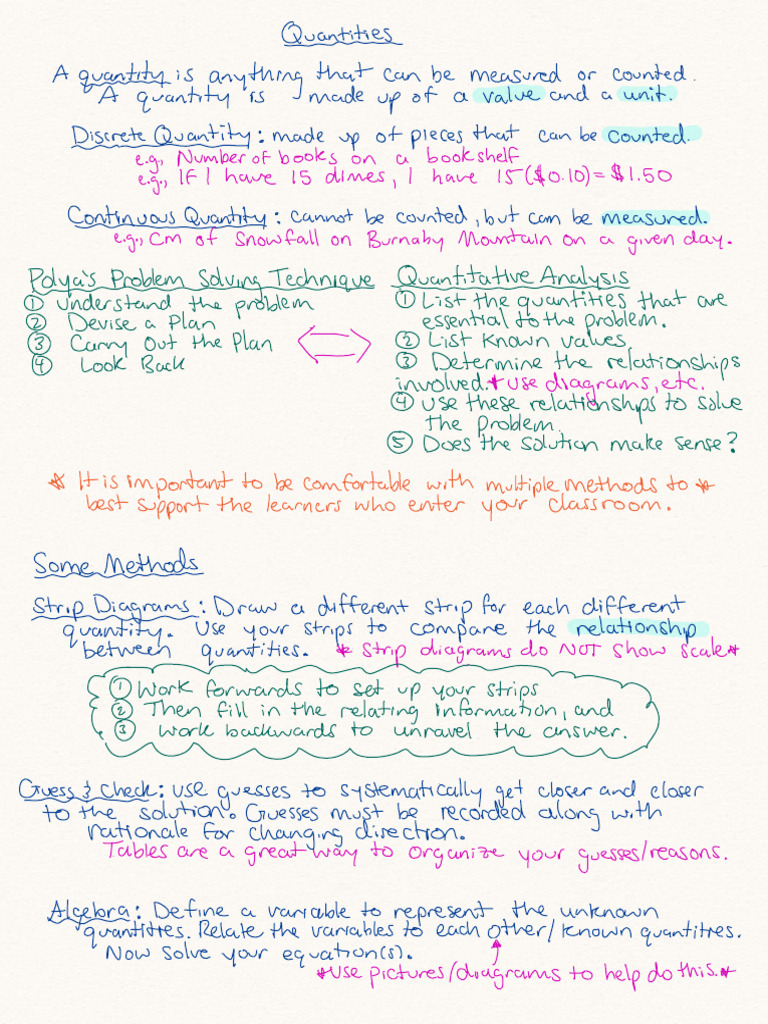 Quantities
A quantity is anything that can be measured or counted.
A quantity is made up of a value and a unit.
Discrete Quantity: made up of pieces that can be counted.
e.g., Number of books on a bookshelf
e.g., If I have 15 dimes, I have 15($0.10)=$1.50
Continuous Quantity: cannot be counted, but can be measured.
e.g., cm of snowfall on Burnaby Mountain on a given day.
Polya's Problem Solving Technique
① Understand the problem
② Devise a Plan
③ Carry Out the Plan
④ Look Back
Quantitative Analysis
① List the quantities that are
essential to the problem.
② List known values.
③ Determine the relationships
involved. * use diagrams, etc.
④ Use these relationships to solve
the problem.
⑤ Does the solution make sense?
* It is important to be comfortable with multiple methods to *
best support the learners who enter your classroom.
Some Methods
Strip Diagrams: Draw a different strip for each different
quantity. Use your strips to compare the relationship
between quantities. * Strip diagrams do NOT show scale *
① Work forwards to set up your strips
② Then fill in the relating information, and
③ work backwards to unravel the answer.
Guess & Check: use guesses to systematically get closer and closer
to the solution. Guesses must be recorded along with
rationale for changing direction.
Tables are a great way to organize your guesses/reasons.
Algebra: Define a variable to represent the unknown
quantities. Relate the variables to each other/known quantities.
Now solve your equation(s).
*use pictures/diagrams to help do this.*